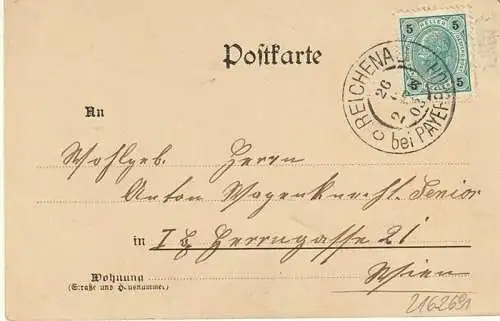 Postkarte
5 HELLER 5
5 5
REICHENAU
26 2 03
bei PAYERBACH
An
Wohlgeb. Herrn
Anton Wagenknecht. Senior
in I Herrngasse 21
Wien
Wohnung
(Straße und Hausnummer)
2162691